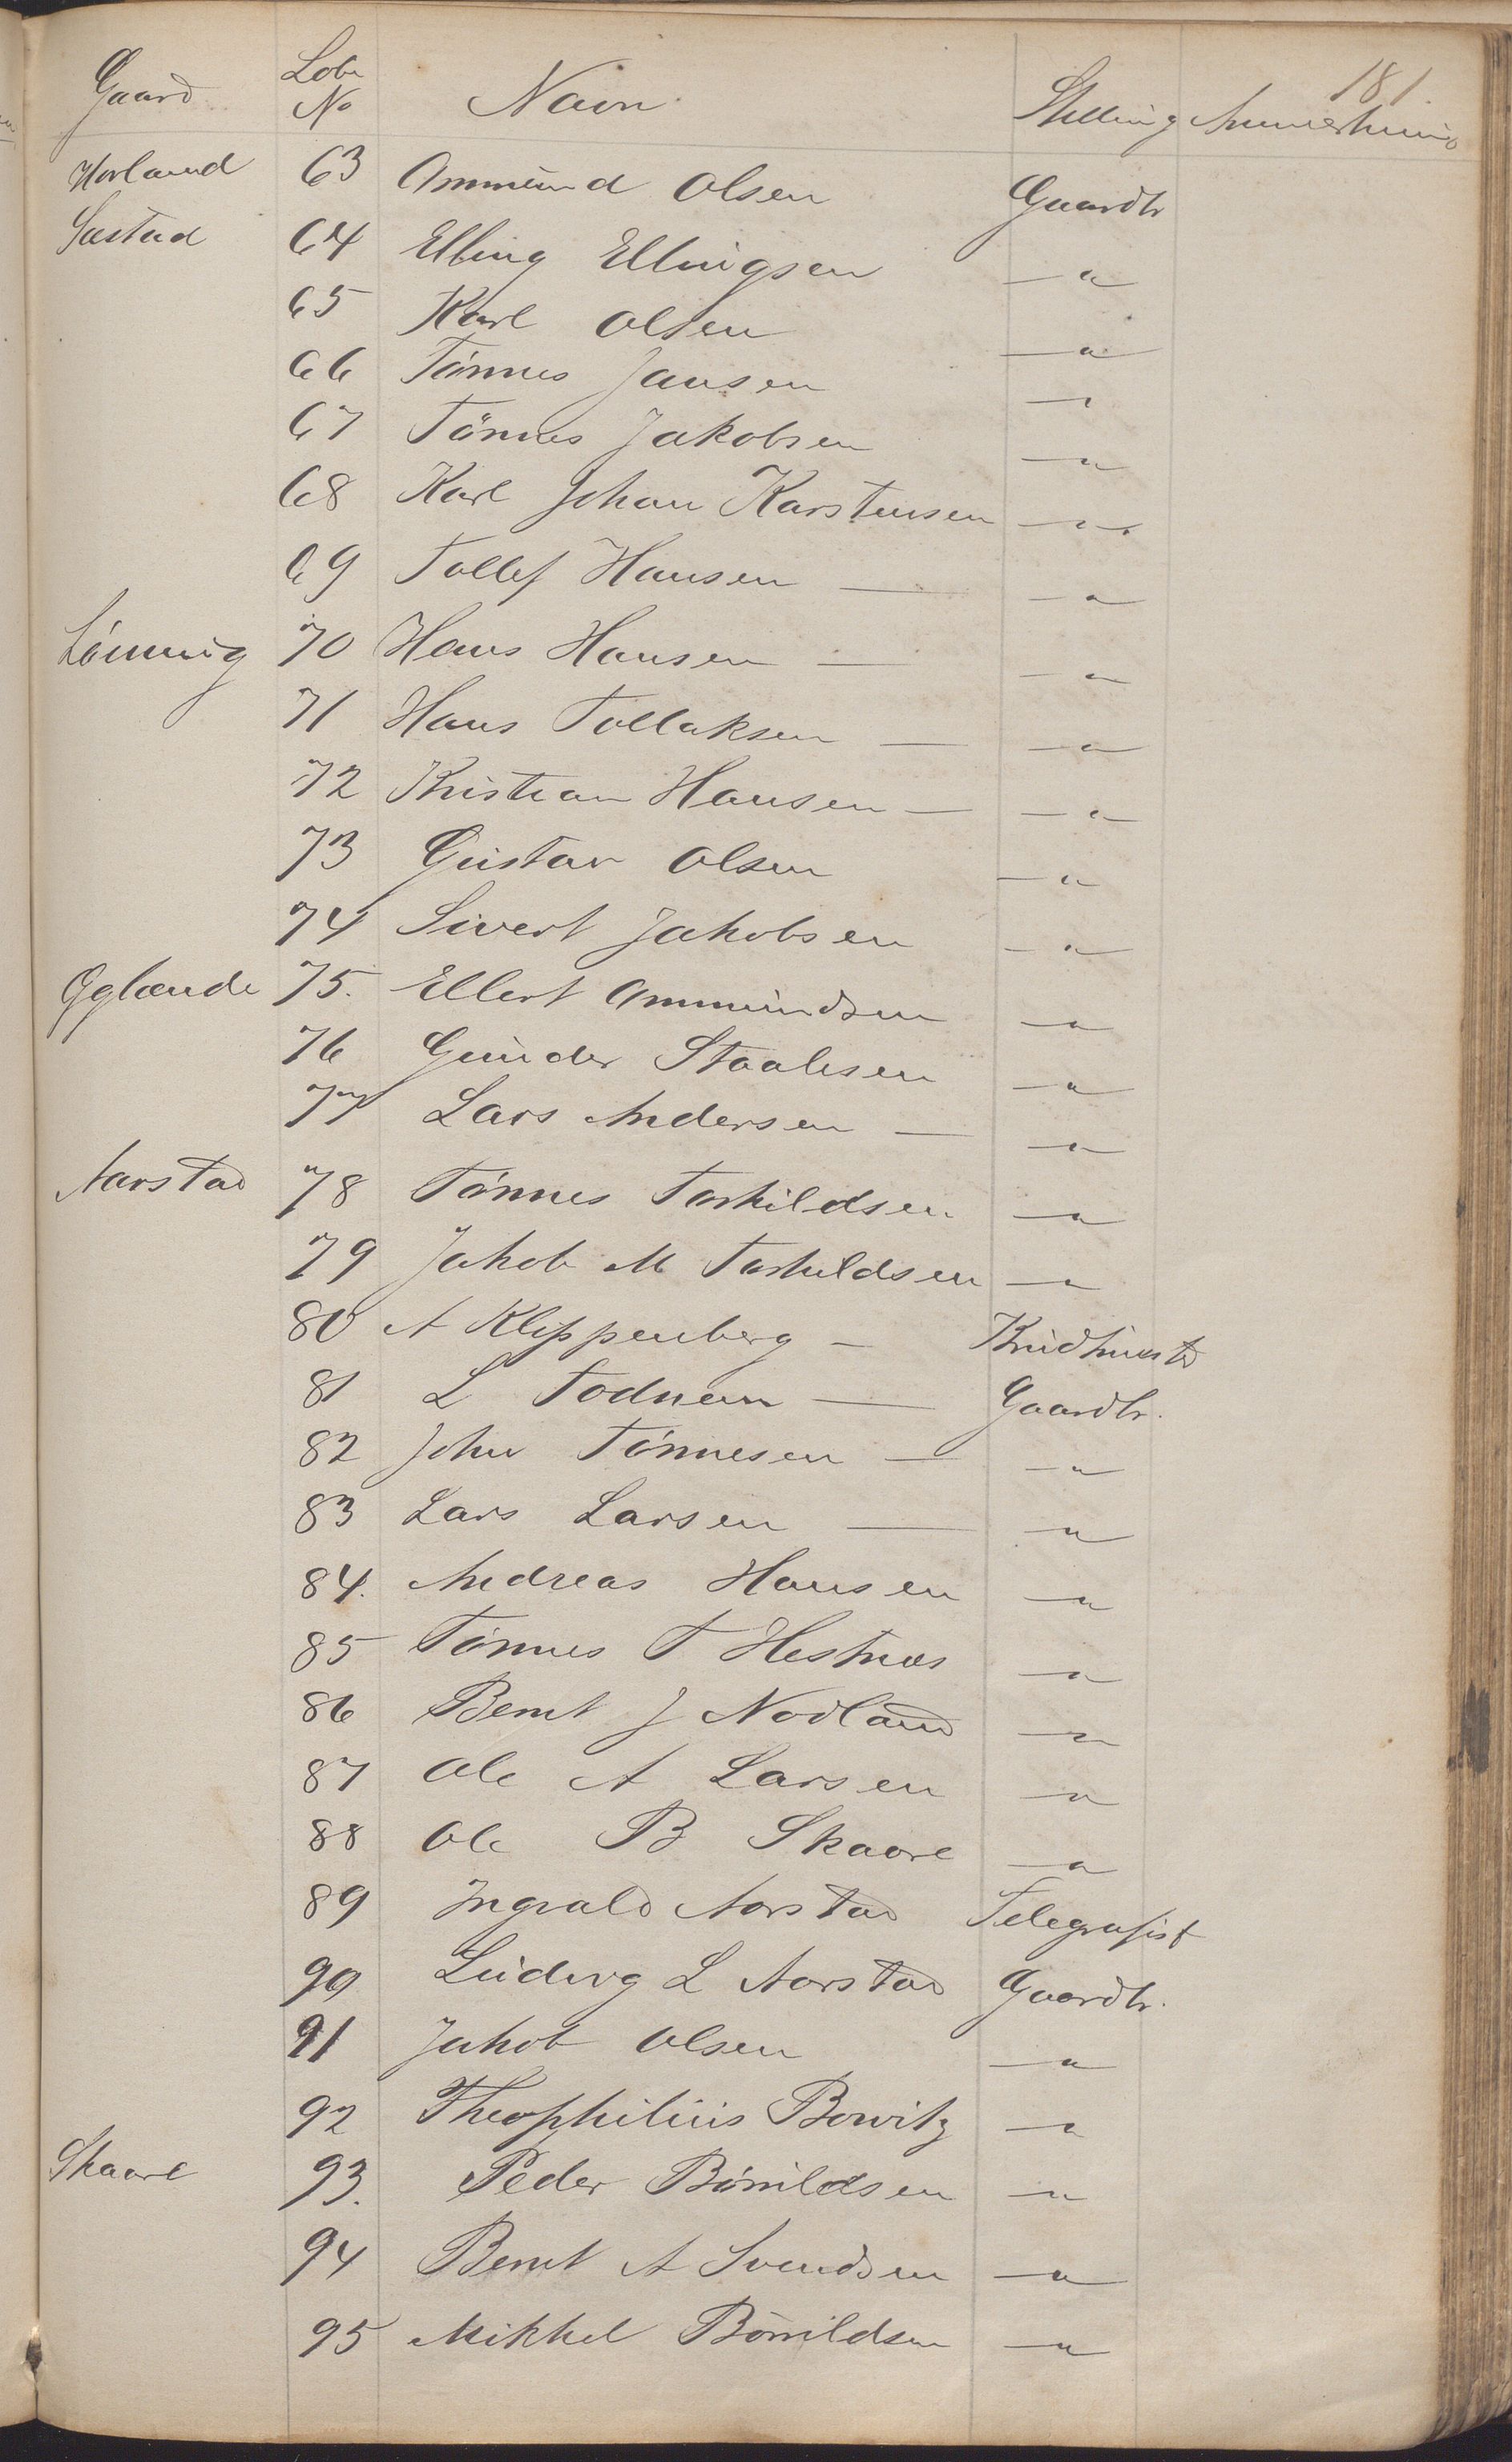 181.
Gaard Lobe No Navn Stilling Anmerkning
Horland 63 Ommund Olsen Gaardbr
Sæstad 64 Elling Ellingsen — " —
65 Karl Olsen — " —
66 Tönnes Jansen — " —
67 Tönnes Jakobsen — " —
68 Karl Johan Karstensen — " —
69 Tollef Hansen — — " —
Lönning 70 Hans Hansen — — " —
71 Hans Tollaksen — — " —
72 Kristian Hansen — — " —
73 Gustav Olsen — " —
74 Sivert Jakobsen — " —
Eglænde 75. Ellert Ommundsen — " —
76 Gunder Staalesen — " —
77 Lars Andersen — — " —
Aarstad 78 Tönnes Torkildsen — " —
79 Jakob M Torkildsen — " —
80 A Kleppenberg —
81 L Todnem — Gaardbr.
82 John Tönnesen — — " —
83 Lars Larsen — — " —
84. Andreas Hansen — " —
85 Tönnes T Hestnes — " —
86 Bernt J Nodland — " —
87 Ole A Larsen — " —
88 Ole B Skaare — " —
89 Ingvald Aarstad Telegrafist
90 Ludvig L Aarstad Gaardbr.
91 Jakob Olsen — " —
92 Theophilius Bowitz — " —
Skaare 93. Peder Börrildsen — " —
94 Bernt A Svendsen — " —
95 Mikkel Börrildsen — " —